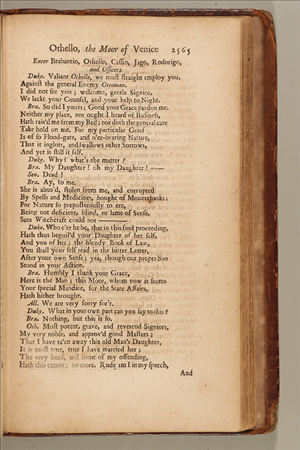 Othello, the Moor of Venice 2565
Enter Brabantio, Othello, Cassio, Jago, Rodorigo,
and Officers.
Duke. Valiant Othello, we must straight employ you,
Against the general Enemy Ottoman.
I did not see you; welcome, gentle Signior,
We lackt your Counsel, and your help to Night.
Bra. So did I yours; Good your Grace pardon me.
Neither my place, nor ought I heard of Business,
Hath rais'd me from my Bed; nor doth the general care
Take hold on me. For my particular Grief
Is of so Flood-gate, and o'er-bearing Nature,
That it ingluts, and swallows other Sorrows,
And yet is still it self.
Duke. Why? what's the matter?
Bra. My Daughter! oh my Daughter!——
Sen. Dead!
Bra. Ay, to me.
She is abus'd, stolen from me, and corrupted
By Spells and Medicines, bought of Mountebanks;
For Nature so preposterously to err,
Being not deficient, blind, or lame of Sense,
Sans Witchcraft could not ——
Duke. Who e'er he be, that in this foul proceeding,
Hath thus beguil'd your Daughter of her self,
And you of her; the bloody Book of Law,
You shall your self read in the bitter Letter,
After your own Sense; yea, though our proper Son
Stood in your Action.
Bra. Humbly I thank your Grace,
Here is the Man; this Moor, whom now it seems
Your special Mandate, for the State Affairs,
Hath hither brought.
All. We are very sorry for't.
Duke. What in your own part can you say to this?
Bra. Nothing, but this is so.
Oth. Most potent, grave, and reverend Signiors,
My very noble, and approv'd good Masters;
That I have ta'en away this old Man's Daughter,
It is most true, true I have married her;
The very head, and front of my offending,
Hath this extent; no more. Rude am I in my speech,
And